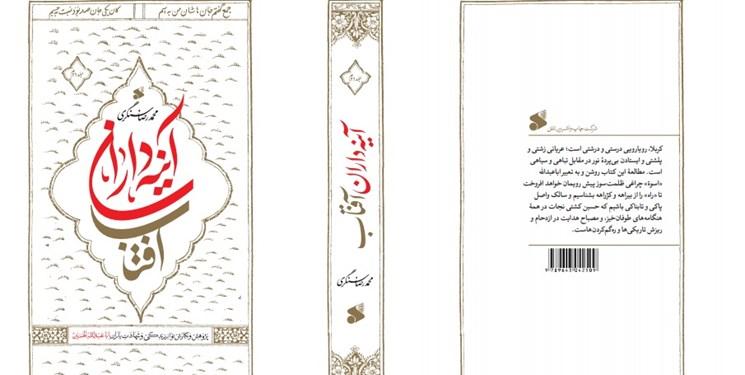 جمع گفتم جان‌هاشان من به اسم
کان یکی جان صد بود نسبت به جسم
جلد دوم
محمدرضا سنگری
آینه‌داران
آفتاب
پژوهش و نگارش نوین از زندگی و شهادت یاران اباعبدالله الحسین
جلد دوم
آینه‌داران آفتاب
محمدرضا سنگری
شرکت چاپ و نشر بین‌الملل
کربلا، رویارویی درستی و درشتی است؛ عریانی زشتی و
پلشتی و ایستادن بی‌پردهٔ نور در مقابل تباهی و سیاهی
است. مطالعهٔ این کتاب روشن و به تعبیر اباعبدالله
«اسوه» چراغی ظلمت‌سوز پیش رویمان خواهد افروخت
تا «راه» را از بیراهه و کژراهه بشناسیم و سالک واصل
پاکی و تابناکی باشیم که حسین کشتی نجات در همهٔ
هنگامه‌های طوفان‌خیز، و مصباح هدایت در ازدحام و
ریزش تاریکی‌ها و ره‌گم‌کردن‌هاست.
9 789643 042509